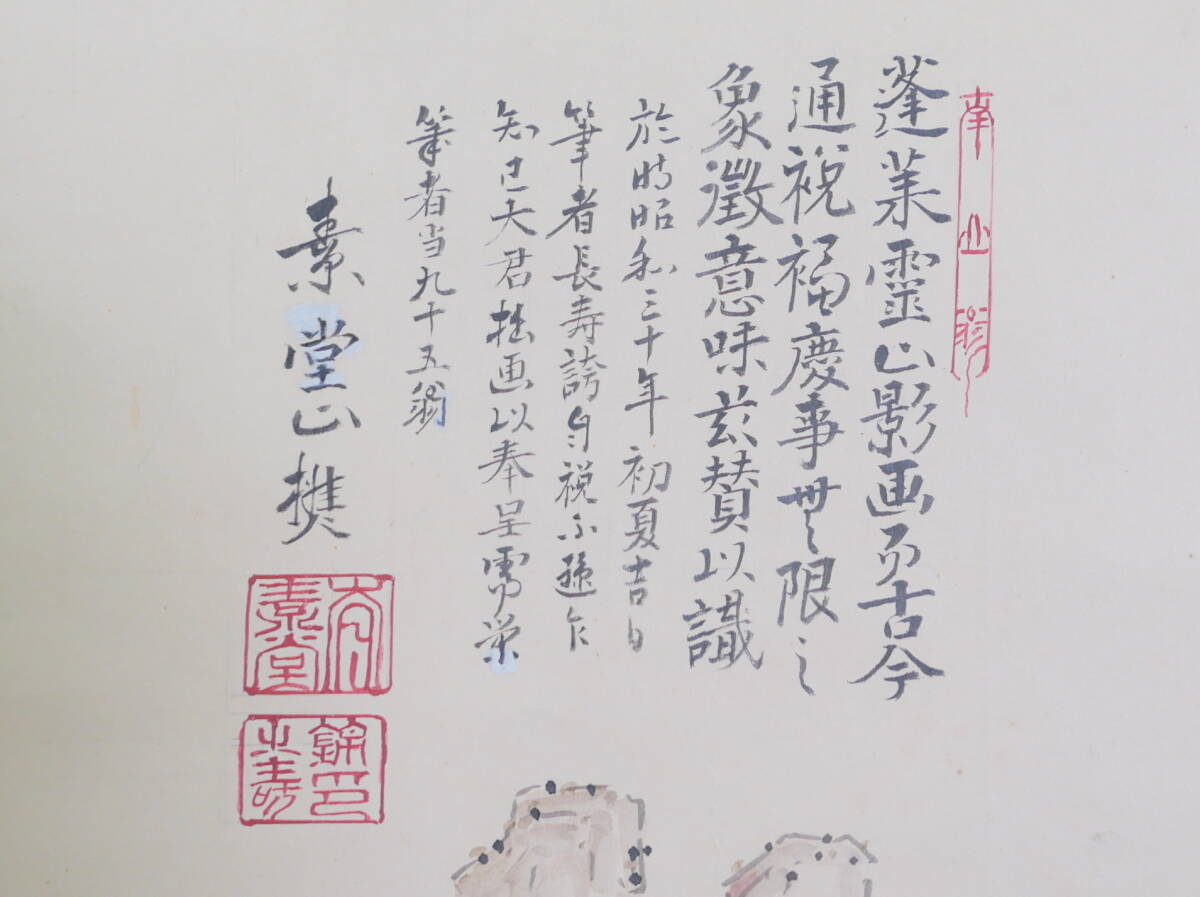 南山翁
蓬莱靈山影画而古今
通祝福慶事無限之
象徴意味茲賛以識
於時昭和三十年初夏吉日
筆者長寿誇自祝不遜乍
知己大君拙画以奉呈需栄
筆者当九十五翁
素堂山樵
素堂